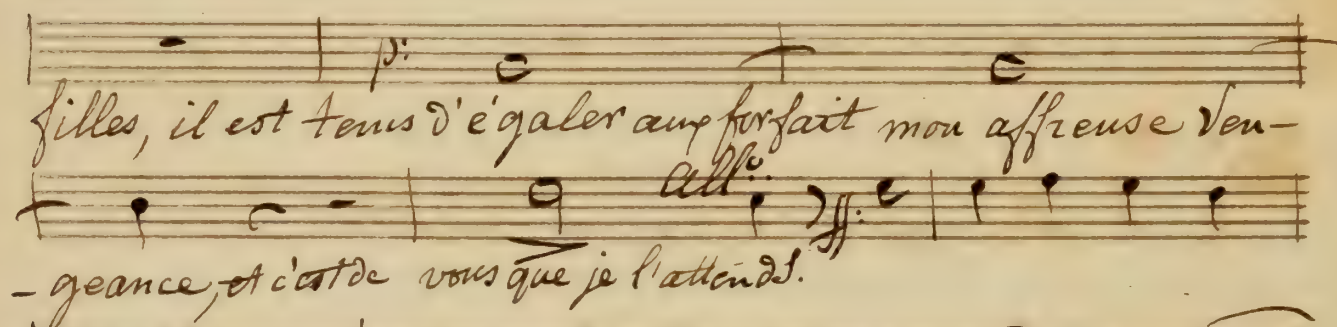 p:
filles, il est tems d'égaler aux forfait mon affreuse Ven-
all.o ff:
- geance, et c'est de vous que je l'attends.